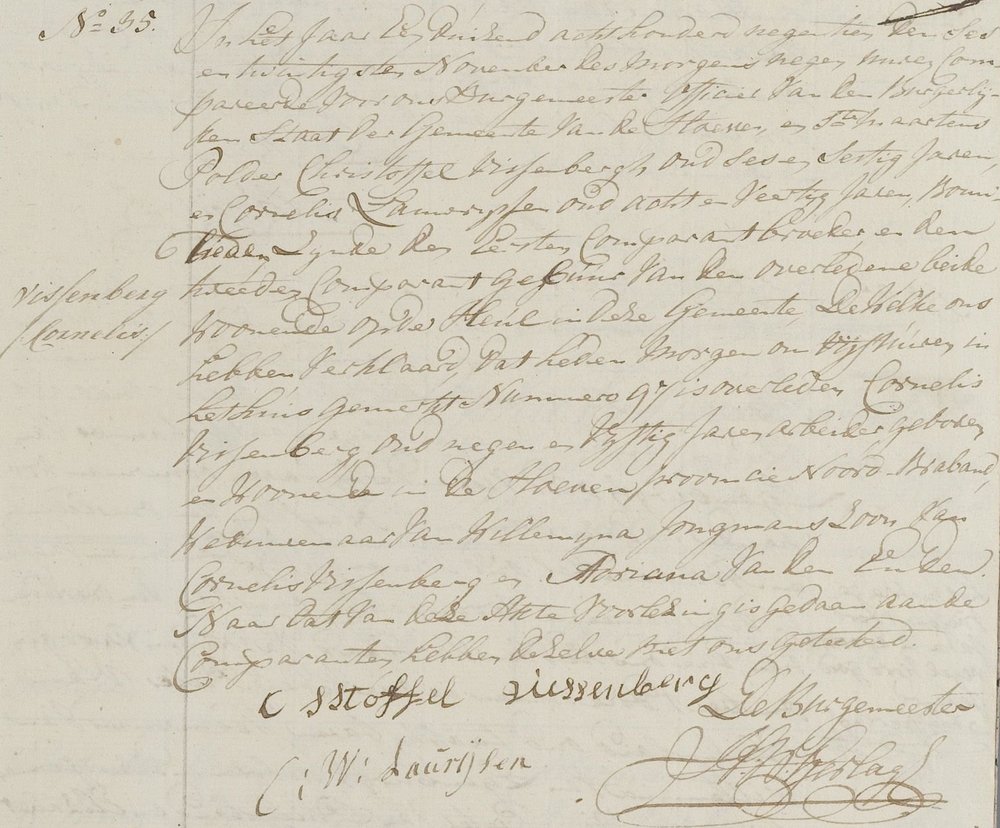 No 35.
In het Jaar Een Duizend acht honderd negentien den Ses
en twintigsten November des morgens negen uuren Com
pareerde voor ons Burgemeester Officier van den Burgerly
ken Staat der Gemeente van de Hoeven en St. Maartens
Polder Christoffel Vissenbergh oud Ses en Sestig Jaren,
en Cornelis Laurÿssen oud acht en Veertig Jaren, Bouw
lieden Zynde den Eersten Comparant broeder en den
tweeden Comparant gebuur van den overledene beide
woonende op de Heul in deze Gemeente, dewelke ons
hebben verklaard, dat heden morgen om vyf uuren in
het huis gemerkt Nummero 97 is overleden Cornelis
Vissenberg oud negen en Vyftig Jaren arbeider, geboren
en woonende in de Hoeven provincie Noord Braband,
Weduwenaar van Willemyna Jongmans Zoon van
Cornelis Vissenberg en Adriana van den Eenden.
Naar dat van deze Akte voorlezing is gedaan aan de
Comparanten hebben dezelve met ons geteekend.
Vissenberg
Cornelis
C sstoffel vissenberg
De Burgemeester
C: W: Laurijsen